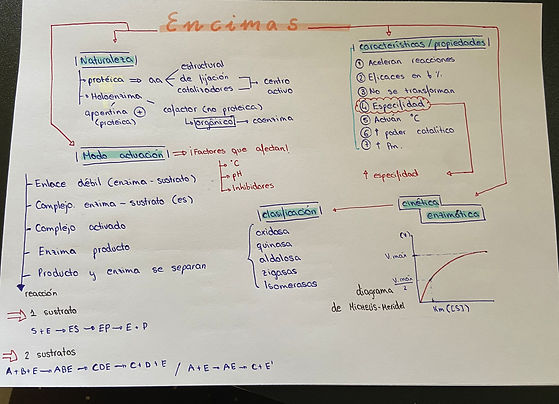 Encimas
Naturaleza
protéica → aa
estructural
de fijación
catalizadores
centro
activo
Holoenzima
apoentina + cofactor (no proteica)
(protéica)
orgánico → coenzima
características/propiedades
1 Aceleran reacciones
2 Eficaces en b %
3 No se transforman
4 Especifidad
5 Actúan °C
6 ↑ poder catalítico
7 ↑ Pm.
↑ especifidad
Modo actuación → ¡Factores que afectan!
°C
pH
Inhibidores
Enlace débil (enzima - sustrato)
Complejo enzima - sustrato (es)
Complejo activado
Enzima producto
Producto y enzima se separan
reacción
⇒ 1 sustrato
S + E → ES → EP → E + P
⇒ 2 sustratos
A + B + E → ABE → CDE → C + D + E / A + E → AE → C + E'
cinética
enzimática
clasificación
oxidasa
quinasa
aldolosa
zigasas
Isomerasas
V. máx
V. máx
2
Km ([S])
diagrama
de Michelis-Meridel